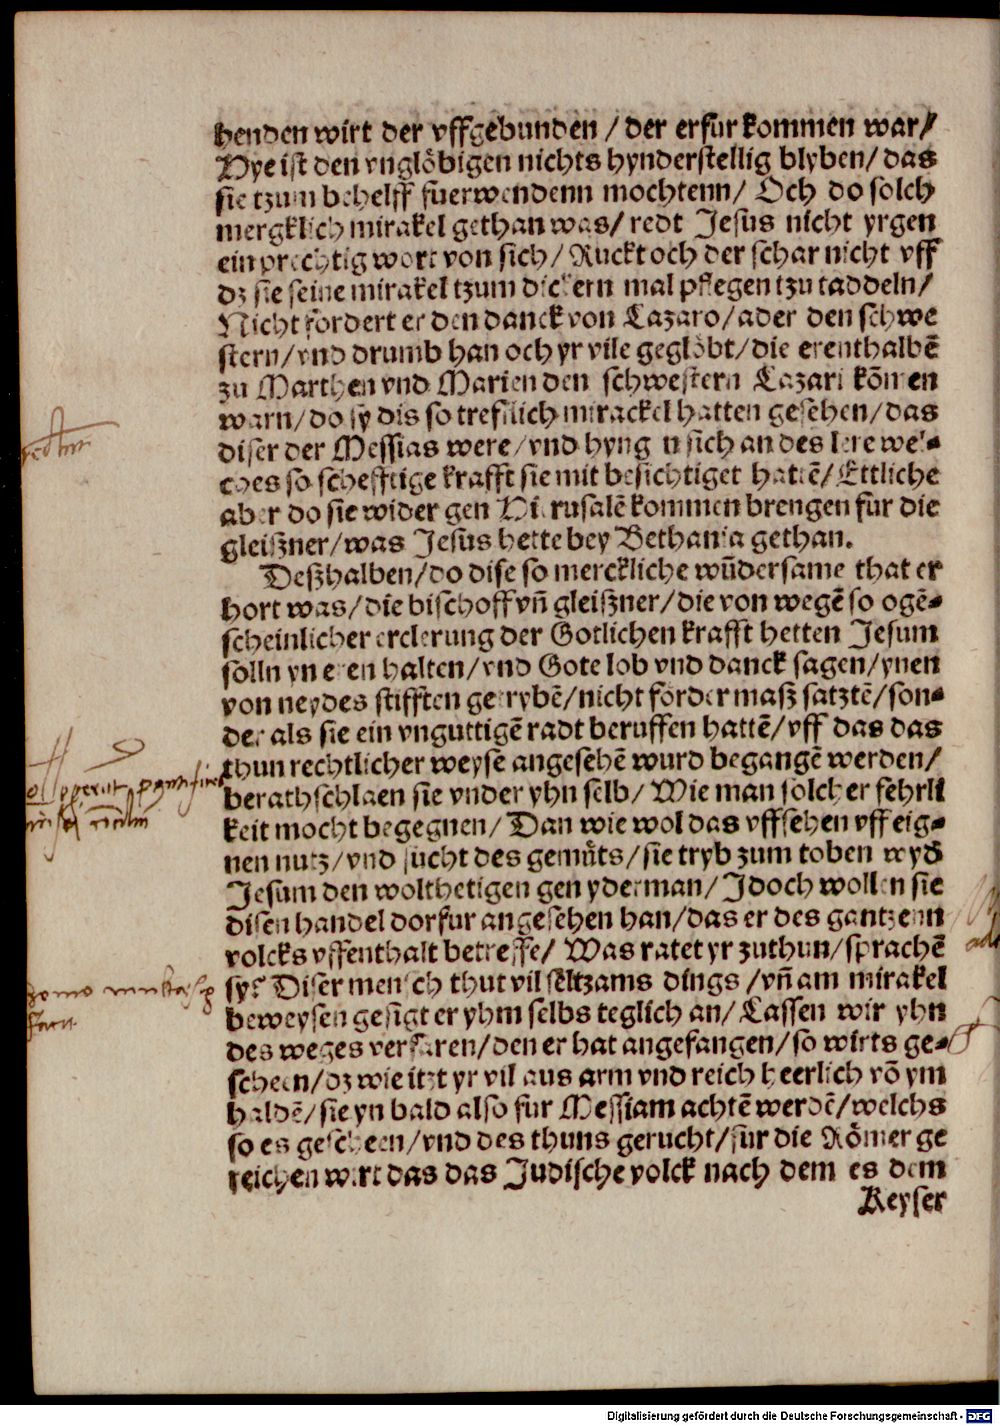 henden wirt der vffgebunden / der erfur kommen war /
Hye ist den vnglöbigen nichts hynderstellig blyben / das
sie tzum behelff fuerwendenn mochtenn / Och do solch
mergklich mirakel gethan was / redt Jesus nicht yrgen
ein prechtig wort von sich / Ruckt och der schar nicht vff
dz sie seine mirakel tzum dickern mal pflegen tzu taddeln /
Nicht fordert er den danck von Lazaro / ader den schwe
stern / vnd drumb han och yr vile geglöbt / die erenthalbē
zu Marthen vnd Marien den schwestern Lazari kōmen
warn / do sy dis so trefflich mirackel hatten gesehen / das
diser der Messias were / vnd hyngen sich an des lere wel-
ches so schefftige krafft sie mit besichtiget hattē / Ettliche
aber do sie wider gen Hierusalē kommen brengen fur die
gleißner / was Jesus hette bey Bethania gethan.
Deßhalben / do dise so merckliche wūdersame that er
hort was / die bischoff vn̄ gleißner / die von wegē so ogē-
scheinlicher erclerung der Gotlichen krafft hetten Jesum
solln yn eren halten / vnd Gote lob vnd danck sagen / ynen
von neydes stifften getrybē / nicht forder maß satztē / son-
der als sie ein vnguttigē radt beruffen hattē / vff das das
thun rechtlicher weyse angesehē wurd begangē werden /
berathschlaen sie vnder yhn selb / Wie man solcher fehrli
keit mocht begegnen / Dan wie wol das vffsehen vff eig-
nen nutz / vnd sucht des gemůts / sie tryb zum toben wyd
Jesum den wolthetigen gen yderman / Jdoch wollen sie
disen handel dorfur angesehen han / das er des gantzenn
volcks vffenthalt betreffe / Was ratet yr zuthun / sprachē
sy? Diser mensch thut vil seltzams dings / vn̄ am mirakel
beweysen gesigt er yhm selbs teglich an / Lassen wir yhn
des weges verfaren / den er hat angefangen / so wirts ge-
scheen / dz wie itzt yr vil aus arm vnd reich heerlich vō ym
haldē / sie yn bald also fur Messiam achtē werdē / welchs
so es gescheen / vnd des thuns gerucht / fur die Römer ge
reichen wirt das das Judische volck nach dem es dem
Keyser
Digitalisierung gefördert durch die Deutsche Forschungsgemeinschaft - DFG